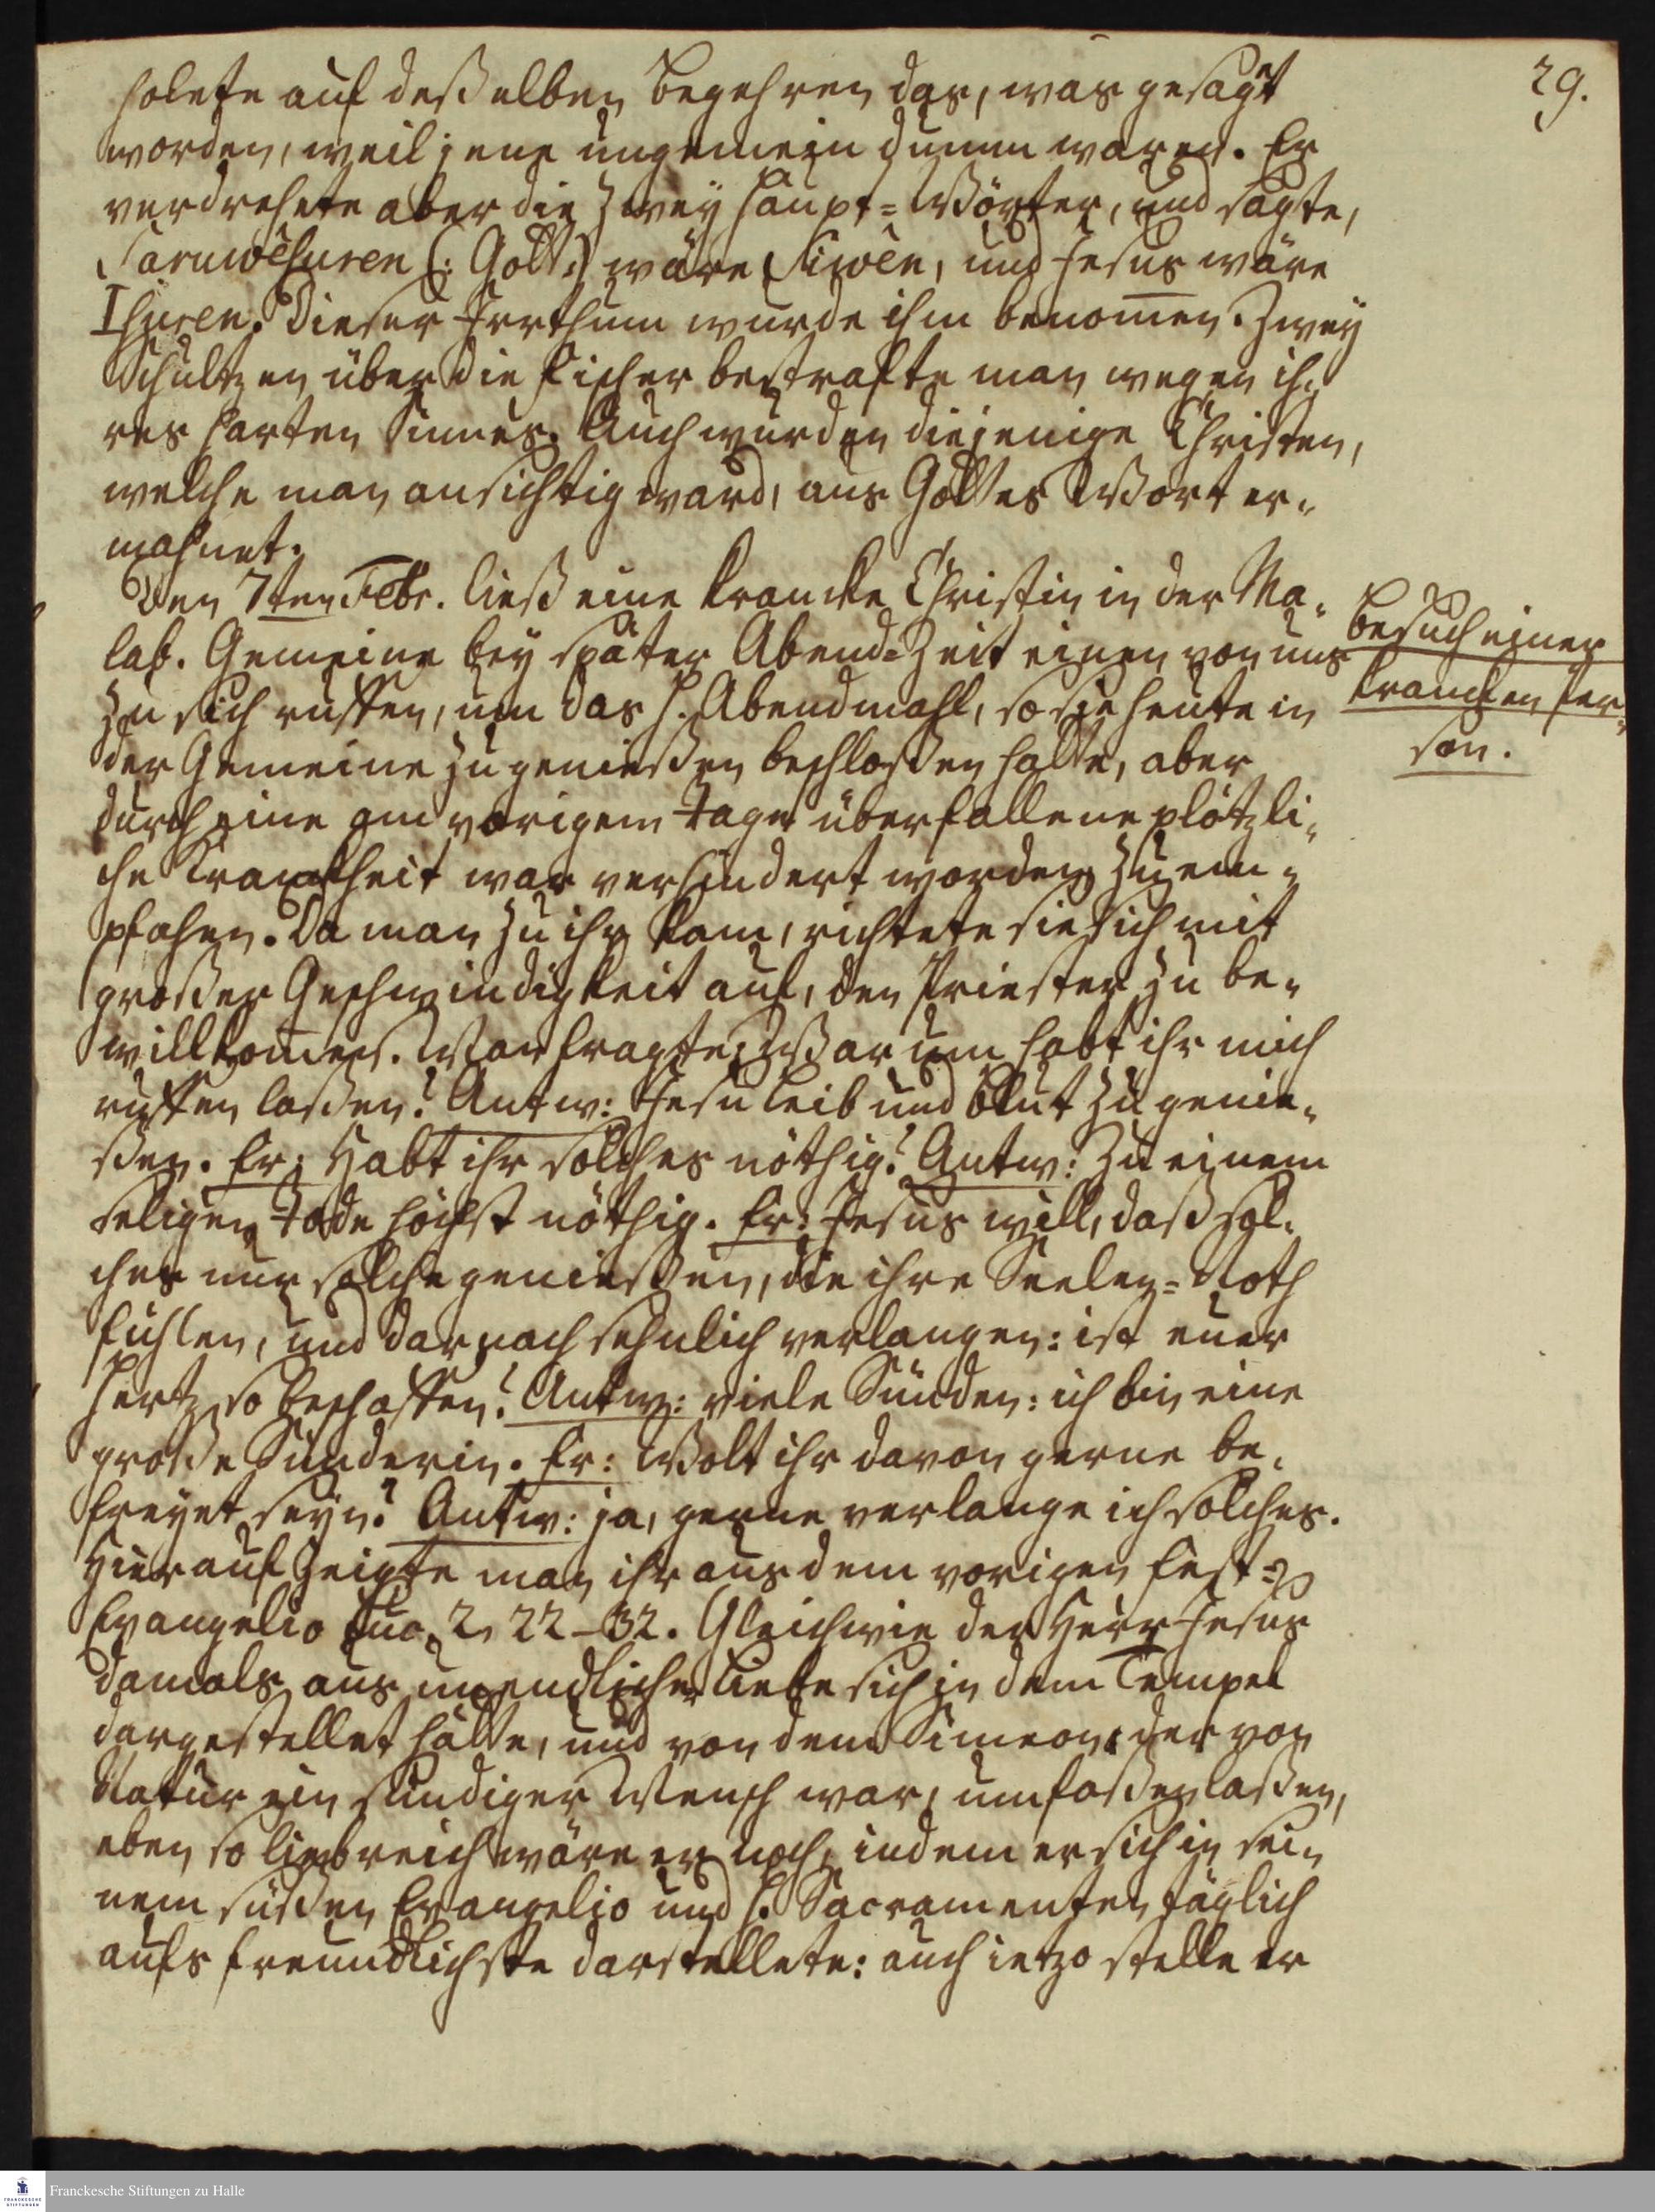 29.
holete auf deßelben Begehren das, was gesagt
worden, weil jene ungemein dumm waren. Er
verdrehete aber die zwey Haupt=Wörter, und sagte,
Saruwêsuren (: Gott:) wäre Siwên, und Jesus wäre
Isuren. Dieser Irrthum wurde ihm benom̄en. Zwey
Schultzen über die Fischer bestrafte man wegen ih„
res harten Sinnes. Auch wurden diejenige Christen,
welche man ansichtig ward, aus Gottes Wort er„
mahnet.
Den 7ten Febr. ließ eine krancke Christin in der Ma„
lab. Gemeine bey später Abend=Zeit einen von uns
zu sich ruffen, um das H. Abendmahl, so sie heute in
der Gemeine zu genießen beschloßen hatte, aber
durch eine am vorigem Tage überfallene plötzli„
che Kranckheit war verhindert worden zu em„
pfahen. Da man zu ihr kam, richtete sie sich mit
großer Geschwindigkeit auf, den Priester zu be„
willkom̄en. Man fragte: Warum habt ihr mich
ruffen laßen? Antw: Jesu Leib und Blut zu genie„
ßen. Er: Habt ihr solches nöthig? Antw: Zu einem
seligen Tode höchst nöthig. Er: Jesus will, daß sol„
ches nur solche genießen, die ihre Seelen=Noth
fühlen, und darnach sehnlich verlangen: ist euer
Hertz so beschaffen? Antw: viele Sünden: ich bin eine
große Sünderin. Er: Wolt ihr davon gerne be„
freyet seyn? Antw: ja, gerne verlange ich solches.
Hierauf zeigte man ihr aus dem vorigen Fest=
Evangelio Luc. 2, 22–32. Gleichwie der Herr Jesus
damals aus unendlicher Liebe sich in dem Tempel
dargestellet hätte, und von dem Simeon, der von
Natur ein sündiger Mensch war, umfaßen laßen,
eben so liebreich wäre er noch, indem er sich in sei„
nem süßen Evangelio und H. Sacramenten täglich
aufs freundlichste darstellete: auch ietzo stelle er
Besuch einer
krancken Per„
son.
Franckesche Stiftungen zu Halle